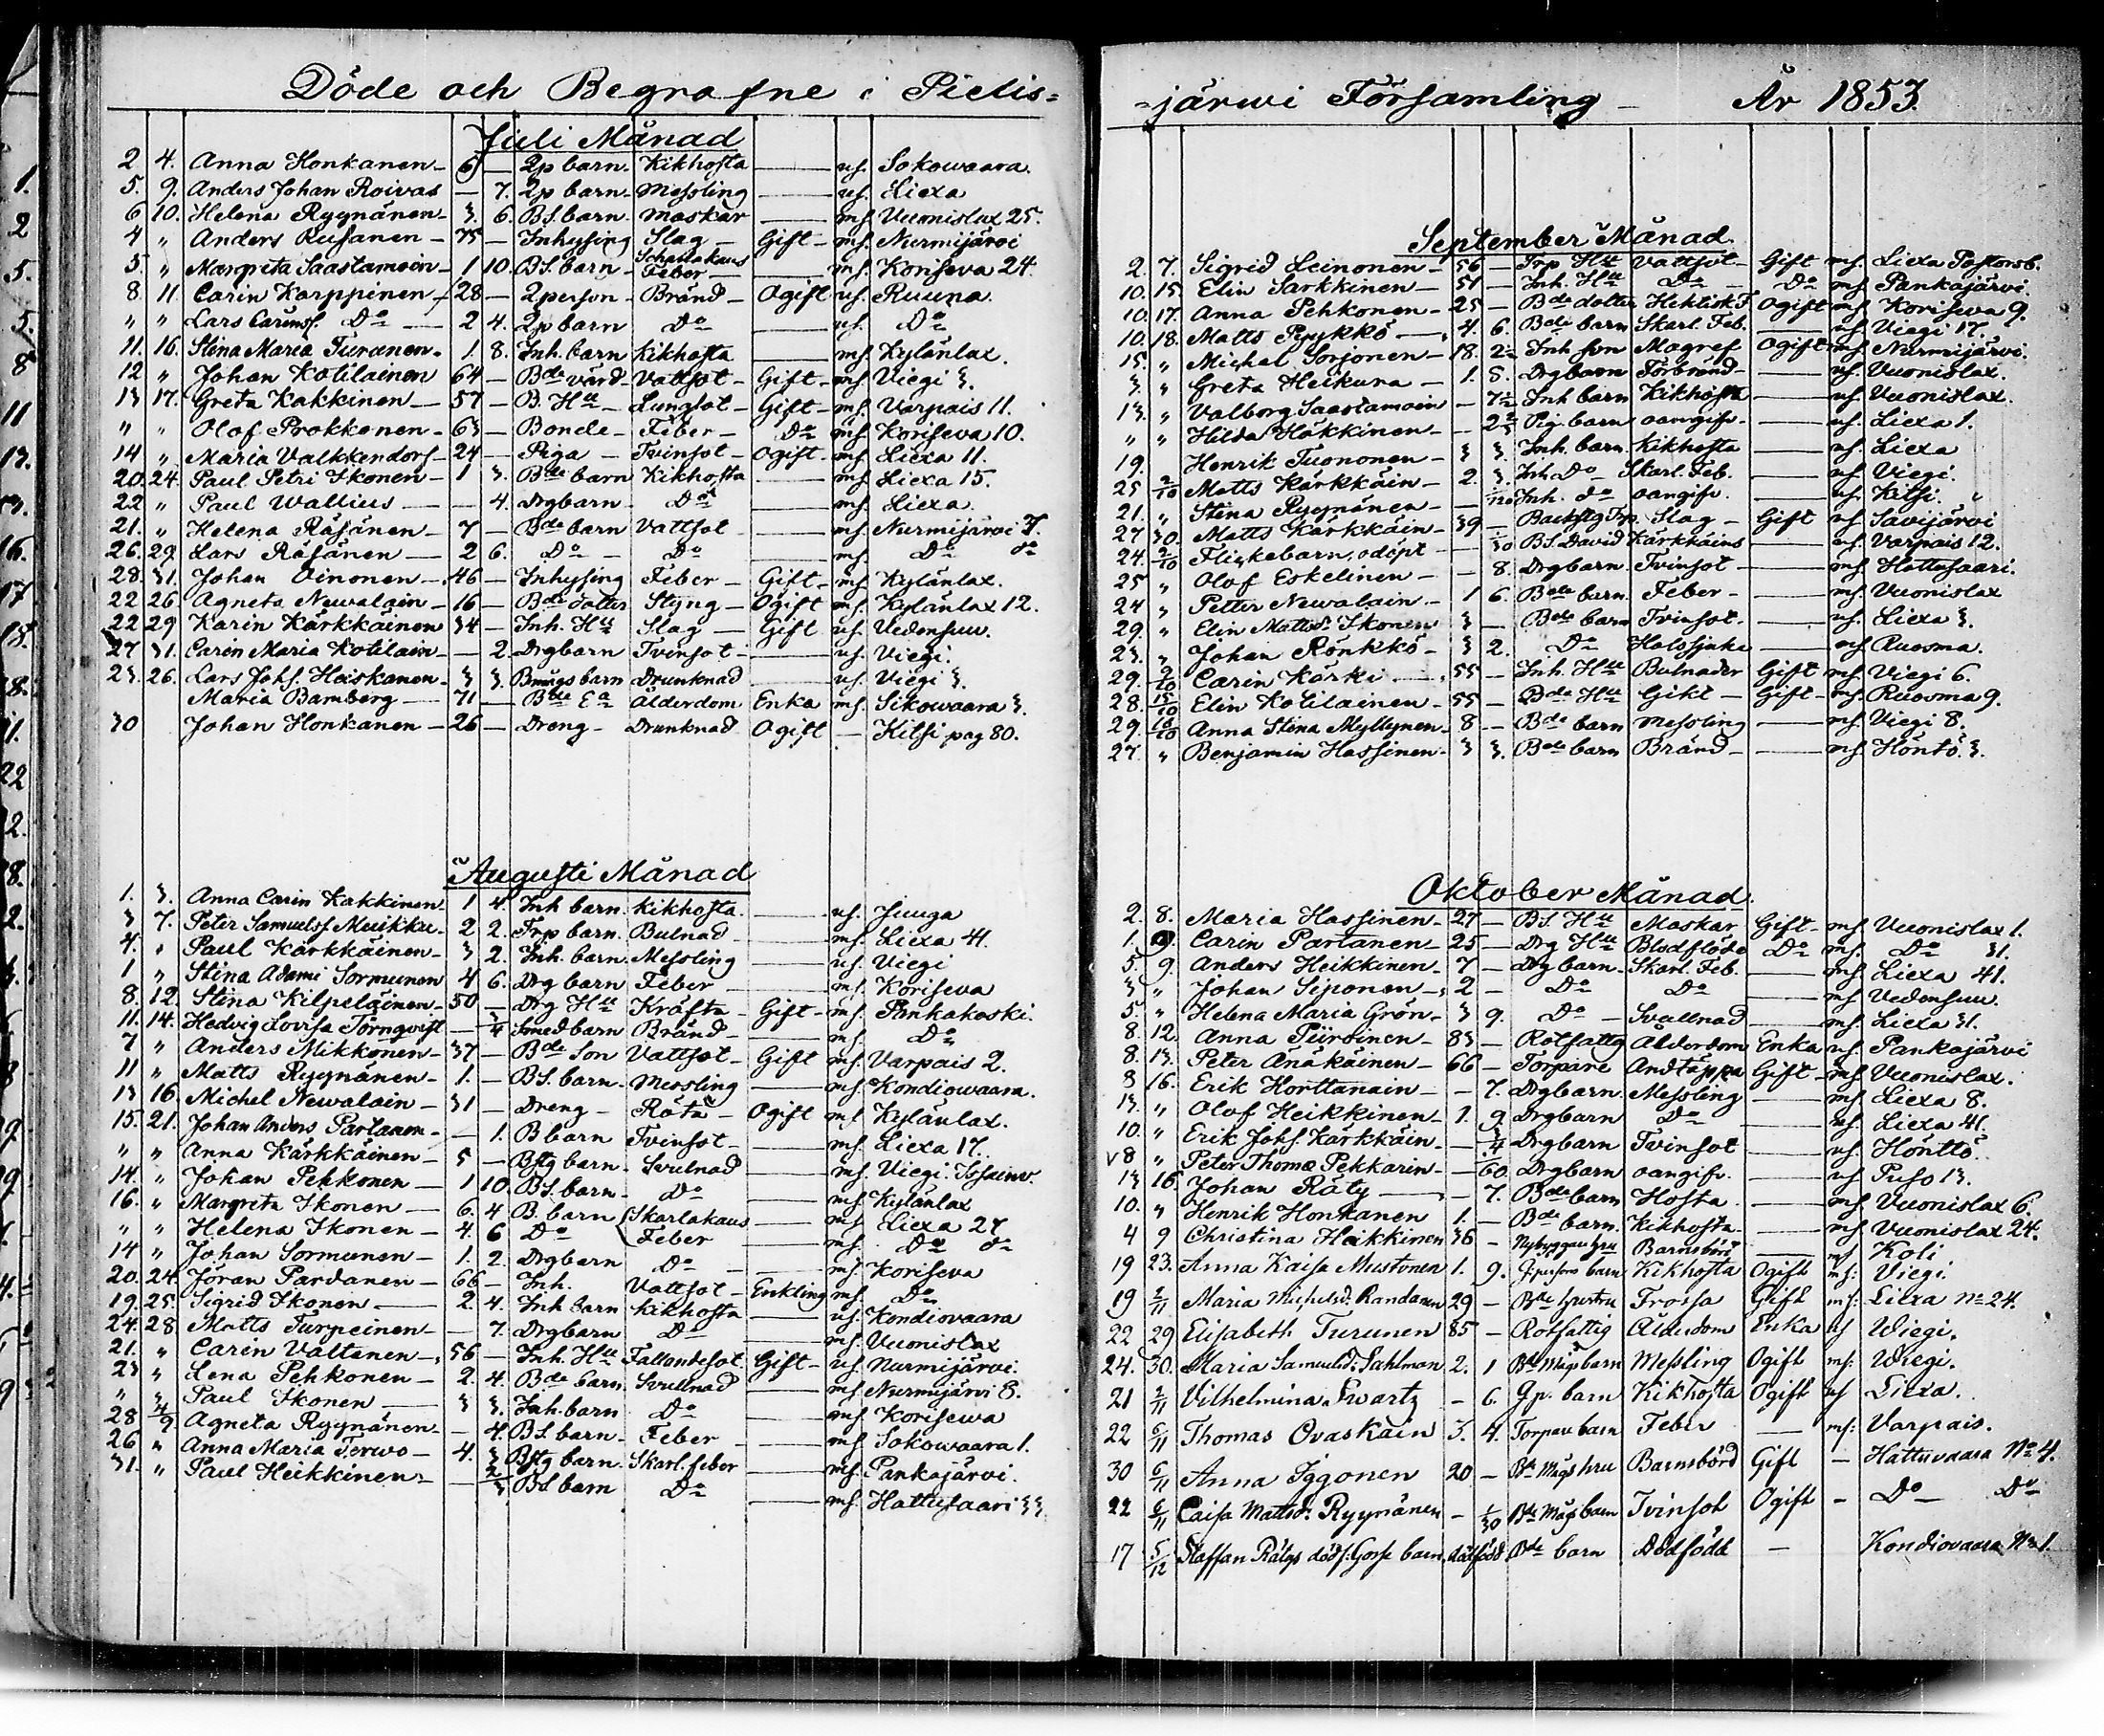 Döde och Begrafne i Pielis=
Juli Månad
2 4. Anna Honkanen 6 — 2p barn. Kikhosta — uf. Sokowaara.
5. 9. Anders Johan Roivas — 7. 2p barn. Messling — uf. Liexa
6 10. Helena Ryynänen 3. 6. BS. barn. Maskar — mf. Vuonislax 25.
4 " Anders Rusanen 75 — Inhysing Slag Gift mf. Nurmijärvi
5. " Margreta Saastamoin 1 10. BS. barn Scharlakans Feber — mf. Koriseva 24.
8. 11 Carin Karppinen 28 — 2person Bränd Ogift uf. Ruuna.
" " Lars Carinsf. Do 2 4. 2p barn Do — uf. Do
11. 16. Stina Maria Turanen 1. 8. Inh. barn Kikhosta — mf. Kylänlax.
12 " Johan Kotilainen 64 — Bde värd Vattsot Gift mf. Viegi 3.
13 17. Greta Kakkinen 57 — B. Hu Lungsot Gift mf. Varpais 11.
" " Olof Prokkonen 63 — Bonde Feber Do mf. Koriseva 10.
14 " Maria Valkkendorf 24 — Piga Tvinsot Ogift mf. Liexa 11.
20. 24. Paul Petri Ikonen 1 3. Bde barn Kikhosta — mf. Liexa 15.
22 " Paul Wallius — 4. Drgbarn Do — mf. Liexa.
21. " Helena Räsänen 7 — Bde barn Vattsot — mf. Nurmijärvi 7.
26. 29. Lars Räsänen 2 6. Do Do — mf. Do do
28. 31. Johan Oinonen 46 — Inhysing Feber Gift mf. Kylänlax.
22 26. Agneta Newalain 16 — Bde dotter Styng Ogift mf. Kylänlax 12.
22 29 Karin Kärkkäinen 34 — Inh. Hu Slag Gift uf. Vedensuu.
27 31. Carin Maria Kotilain — 2. Drgbarn Tvinsot — uf. Viegi.
23. 26. Lars Johf. Heiskanen 3 3. Bmågs barn Drunknad — uf. Viegi 3.
Maria Bamberg 71 — Bde Ea Ålderdom Enka mf. Sikowaara 3.
30 Johan Honkanen 26 — Dreng Drunknad Ogift — Kitsi pag 80.
Augusti Månad
1. 3. Anna Carin Kakkinen 1 4. Inh barn. Kikhosta. — uf. Juuga
3 7. Peter Samuelsf Muikku 2 2. Trp barn. Bulnad — mf. Liexa 41.
4. " Paul Kärkkäinen 3 2. Inh. barn. Messling — uf. Viegi
1 " Stina Adami Sormunen 4 6. Drg barn Feber — mf. Koriseva
8. 12. Stina Kilpeläinen 50 — Drg Hu Kräfta Gift mf. Pankakoski.
11. 14. Hedvig Lovisa Törnqvist — 3/4 Smed barn Bränd — mf. Do
7 " Anders Mikkonen 37 — Bde Son Vattsot Gift mf. Varpais 2.
11 " Matts Ryynänen 1. — BS. barn. Messling — mf. Kondiowaara.
13 16. Michel Newalain 31 — Dreng Röta Ogift mf. Kylänlax.
15. 21. Johan Anders Partanen — 1. B barn Tvinsot — mf. Liexa 17.
" " Anna Kärkkäinen 5 — Bstg barn Svulnad — mf. Viegi.
14. " Johan Pehkonen 1 10. BS. barn Do — mf. Kylänlax
16. " Margreta Ikonen 6. 4 B. barn Skarlakans — mf. Liexa 27
" " Helena Ikonen 4. 6 Do Feber — mf. Do do
14 " Johan Sormunen 1. 2. Drgbarn Do — mf. Koriseva
20. 24. Jöran Pardanen 66 — Inh. Vattsot Enkling mf. Do
19. 25. Sigrid Ikonen 2. 4. Inh barn Kikhosta — uf. Kondiovaara
24. 28 Matts Turpeinen — 7. Drgbarn Do — mf. Vuonislax
21. " Caren Valtanen 56 — Inh. Hu Fallandesot Gift uf. Nurmijärvi.
23 " Lena Pehkonen 2. 4. Bde barn Svullnad — mf. Nurmijärvi 8.
" " Paul Ikonen 3 3. Inh. barn Do — mf. Korisewa
28 4/9. Agneta Ryynänen — 4. BS. barn Feber — mf. Sokowaara 1.
26 " Anna Maria Terwo 4. 3 Bstg barn. Skarl. feber — mf. Pankajärvi.
31. " Paul Heikkinen — 2/3 BS barn Do — mf. Hattusaari 33
=järwi Församling — År 1853.
September Månad
2. 7. Sigrid Leinonen 56 — Trp Hu Vattsot Gift mf. Liexa Pastorsb.
10. 15. Elin Sarkkinen 51 — Inh. Hu Do Do mf. Pankajärvi.
10. 17. Anna Pehkonen 25 — Bde dotter Hektisk F. Ogift mf. Koriseva 9.
10. 18. Matts Pyykkö 4. 6. Bde barn Skarl. Feb. — uf. Viegi 17.
15. " Michal Sorjonen 18. 2 1/2 Inh son Magref Ogift mf. Nurmijärvi.
3 " Greta Heikura 1. 8. Drgbarn Förbränd — uf. Vuonislax.
13. " Valborg Saastamoin — 7 1/2 Inh barn Kikhosta — uf. Vuonislax.
" " Hilda Häkkinen — Pig barn oangifv. — uf. Liexa 1.
19. Henrik Tuononen 3 3. Inh. barn Kikhosta — uf. Liexa
25 2/10 Matts Kärkkäin 2. 3. Inh. Do Skarl. Feb. — uf. Viegi.
21. " Stina Ryynänen — Inh. do oangifv. — uf. Kitsi.
27 30. Matts Kärkkäin 39 — Backstg Trp Slag Gift uf. Savijärvi
24. 2/10 Flickebarn, odöpt — 1/30 BS. David Kärkkäins — uf. Varpais 12.
25 " Olof Eskelinen — 8. Drgbarn. Tvinsot — mf. Hattusaari.
24 " Petter Newalain 1 6. Bde barn. Feber — mf. Vuonislax
29. " Elin Mattsd. Ikonen 3 — Bde barn Tvinsot. — uf. Liexa 3.
23. " Johan Rönkkö 3 2. Do Halssjuka — mf. Ruosma.
29. 2/10 Carin Körki 55 — Inh. Hu Bulnader Gift mf. Viegi 6.
28. Elin Kotilainen 55 — Bde Hu Gikt Gift mf. Ruosma 9.
29. 16/10 Anna Stina Myllynen 8 — Bde barn Messling — mf. Viegi 8.
27. " Benjamin Hassinen 3 3. Bde barn Bränd — mf. Höntö. 3.
Oktober Månad.
2. 8. Maria Hassinen 27 — BS. Hu Maskar Gift mf. Vuonislax 1.
1. Carin Partanen 25 — Drg Hu Blodflöde Do mf. Do 31.
5. 9. Anders Heikkinen 7 — Drgbarn. Skarl. Feb. — mf. Liexa 41.
3 " Johan Siponen 2 — Do Do — mf. Vedensuu.
5. " Helena Maria Grön 3 9. Do Svullnad — mf. Liexa 31.
8 12. Anna Piiroinen 83 — Rotfattig Ålderdom Enka uf. Pankajärvi
8. 13. Peter Änäkäinen 66 — Torpare Andtäppa Gift mf. Vuonislax.
8 16. Erik Horttanain — 7. Drgbarn. Messling — mf. Liexa 8.
13. " Olof Heikkinen 1. 9 Drgbarn Do — uf. Liexa 41.
10. " Erik Johf. Kärkkäin — 3/4 Drgbarn Tvinsot — uf. Hönttö.
v 8 " Peter Thomæ Pekkarin — /60. Drgbarn oangifv. — uf Puso 13.
13 16. Johan Räty — 7. Bde barn Hosta — mf Vuonislax 6.
10. " Henrik Honkanen 1. — Bde barn. Kikhosta — mf Vuonislax 24.
4 9 Christina Heikkinen 36 — Nybyggare hru Barnsbörd — mf Koli
19 23. Anna Kaisa Mustonen 1. 9. barn Kikhosta Ogift mf: Viegi.
19 2/11 Maria Michelsd. Randanen 29 — Bde hustru Frossa Gift mf: Liexa No 24.
22 29 Elisabeth Turunen 85 — Rotfattig Ålderdom Enka uf Wiegi.
24. 30. Maria Samuelsd: Sahlman 2. 1 Bde Mågs barn Messling Ogift mf: Wiegi.
21 2/11 Vilhelmina Swartz — 6. Gp. barn Kikhosta Ogift uf Liexa.
22 6/11 Thomas Ovaskain 3. 4. Torpare barn Feber — mf: Varpais.
30 6/11 Anna Iggonen 20 — Bde Mågs hru Barnsbörd Gift — Hattuvaara No 4.
22 6/11 Caisa Mattsd. Ryynänen — 1/30 Bde Mågs barn Tvinsot Ogift — Do Do
17 5/12 Staffan Rätys dödf: Gosse barn dödfödd Bde barn Dödfödd — Kondiovaara No 1.